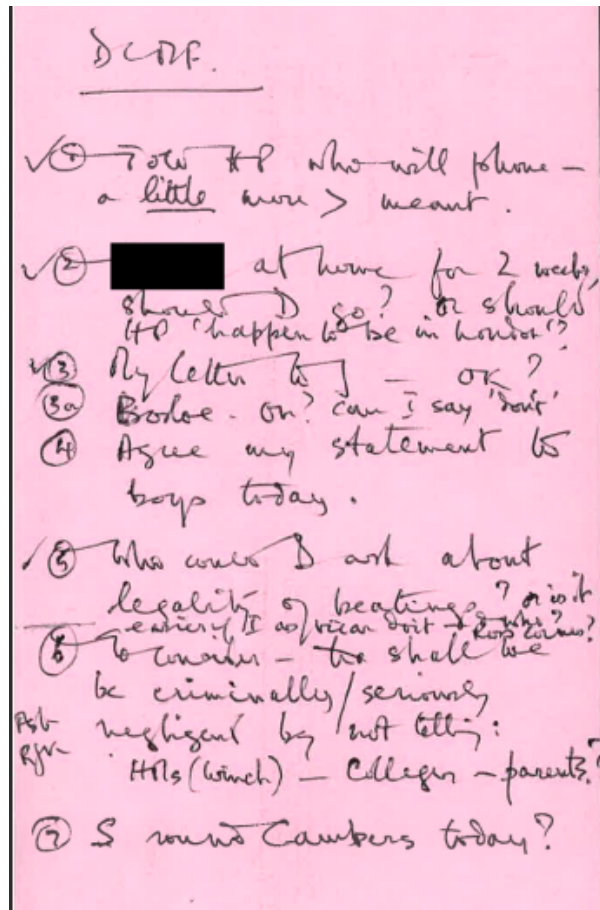 DCMF.
① Told HP who will phone –
a little more > meant.
② at home for 2 weeks,
should D go? or should
HP 'happen to be in London'?
③ My letter to J – OK?
③a on? Can I say 'don't'
④ Agree my statement to
boys today.
⑤ Who could D ask about
legality of beatings? or is it
easier if I as vicar do it – & who?
⑥ To consider – shall we
be criminally/seriously
negligent by not telling:
HMs (Winch) – Colleges – parents?
⑦ S round Cambers today?